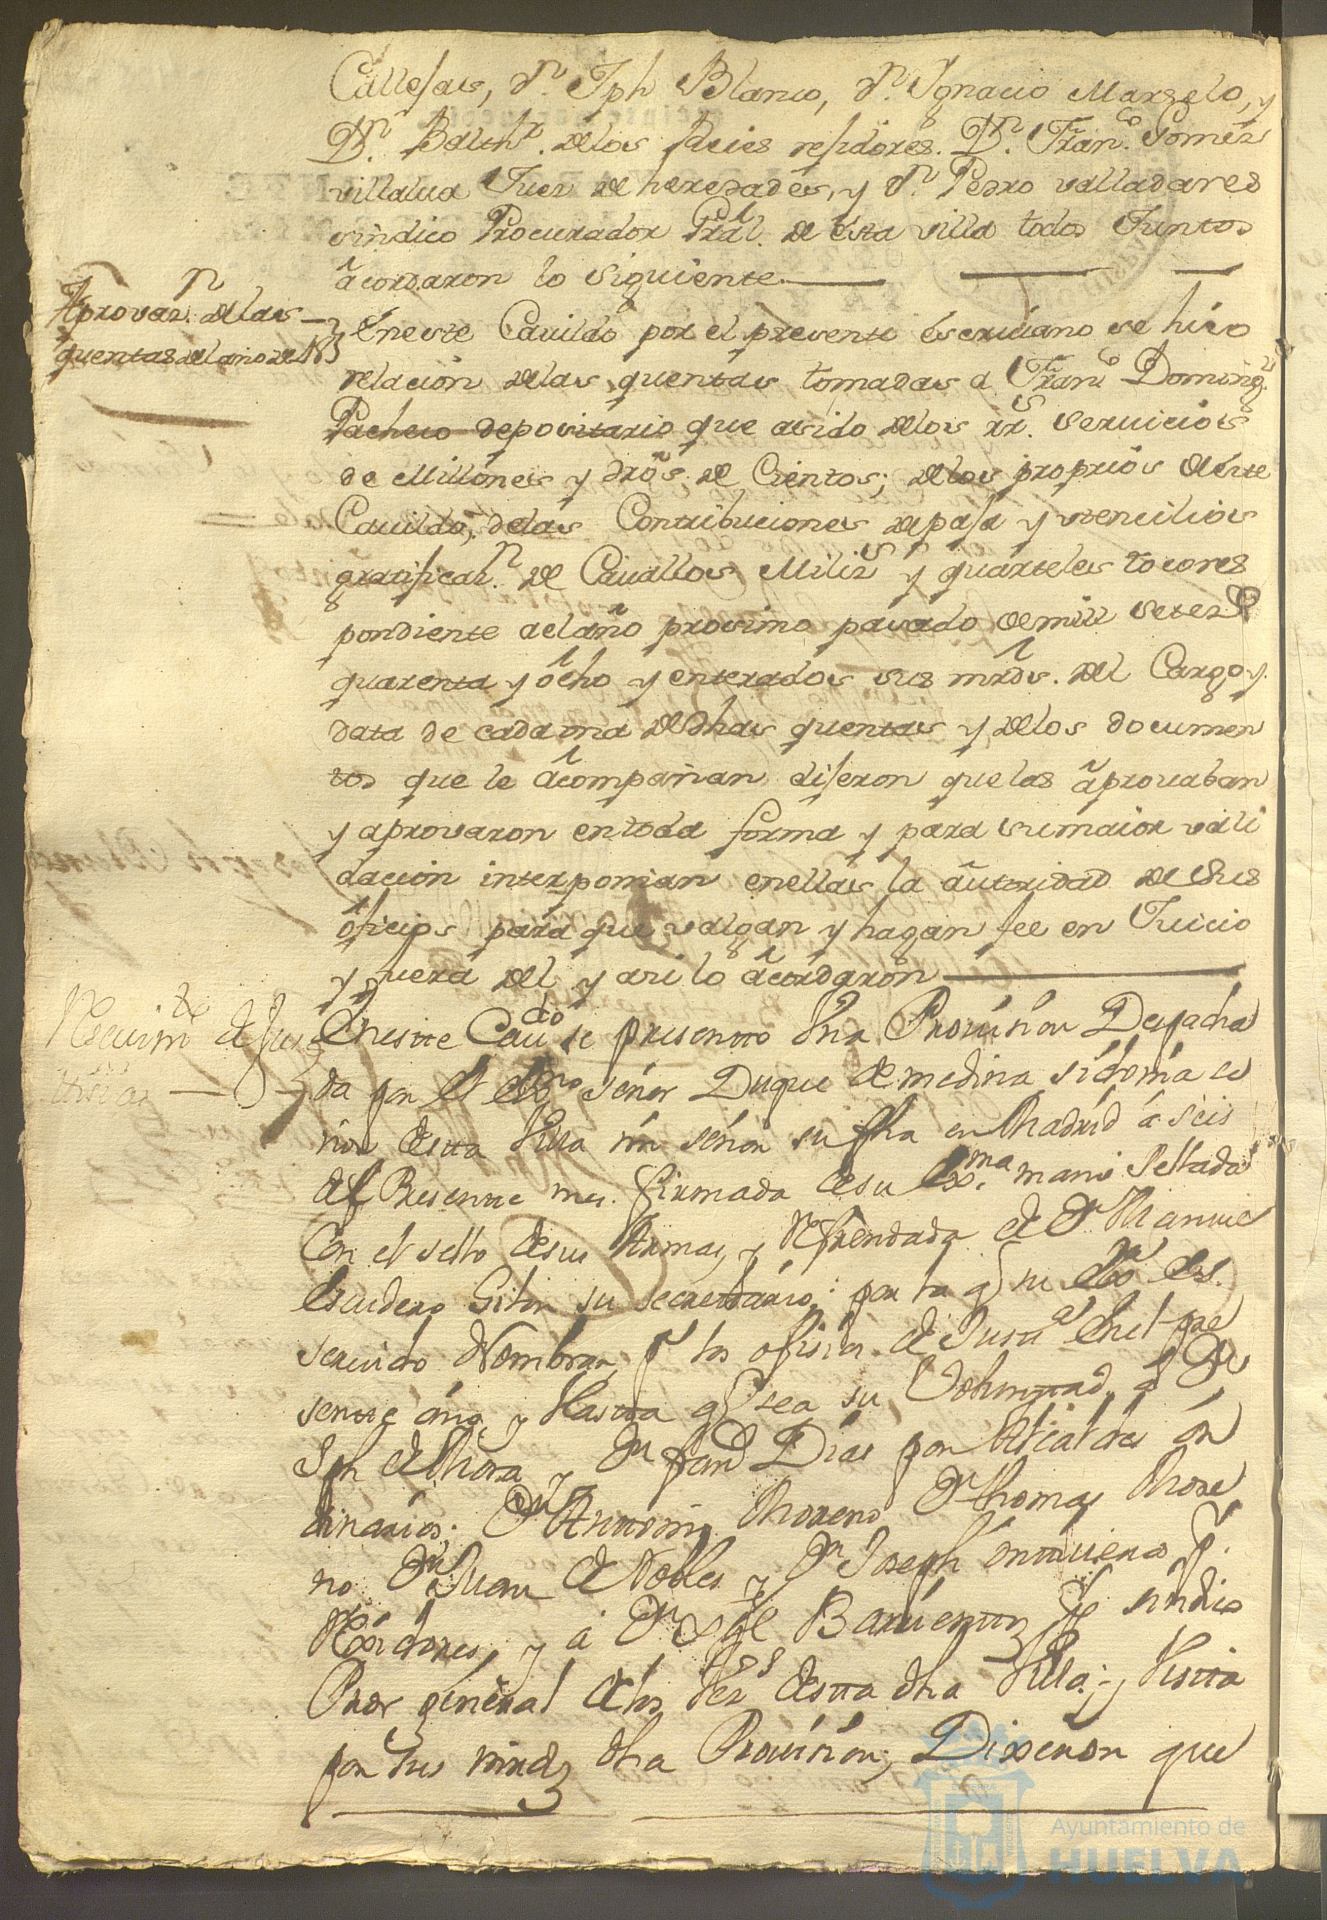 Callejas, Dn. Jph Blanco, Dn. Ygnacio Marzelo, y
Dn. Balthr. delos Reies rejidores. Dn. Franco. Gomez
villalua Juez de heredades, y Dn. Pedro valladares
sindico Procurador Gral. de esta villa todos Juntos
acordaron lo siguiente
Aprovazn. delas
quentas del año de
Eneste Cauildo por el presente escriuano se hizo
relacion delas quentas tomadas a Franco Doming.
Pacheco depositario que asido delos rrs. seruicios
de Millones y dros. de Cientos; delos proprios deeste
Cauildo, delas Contribuciones de paja y utencilios
gratificazn. de Cauallos Milizs y quarteles tocores
pondiente adelaño proximo pasado demill setezs
quarenta y ocho y enterados sus mrds. del Cargo y
data de cada una dedhas quentas y delos documen
tos que le acompañan dijeron que las aprouaban
y aprouaron entoda forma y para sumaior vali
dacion interponian enellas la autoridad de sus
oficios para que valgan y hagan fee en Juicio
y fuera del y asi lo acordaron
Reciuimto de Jus
ticias
Eneste Caudo se presentto Una Prouision Despacha
da por el Exmo señor Duque demedina sidonia se
ñor desta Villa mi señor su fha en Madrid a seis
del Presentte mes. firmada desu Exma. mano sellada
Con el sello desus Armas, y Refrendada de Dn Manuel
Escudero Gilon su secrettario; por la q su Exa. es.
seruido Nombrar pa los ofisios de Justa. enel pre
sentte año, y Hastta q sea su Voluntad, a Dn
Jph de Mora y Dn fernd Dias por Alcaldes or
dinarios; Dn Antonio Moreno Dn thomas More
no Dn Juan de Robles y Dn Joseph pr.
Rexidores, y a Dn Barrientos pr sindico
Pror general delos Vezs desta dha Villa; y Vistta
por sus mrds dha Prouision; Dixeron que
Ayuntamiento de
HUELVA